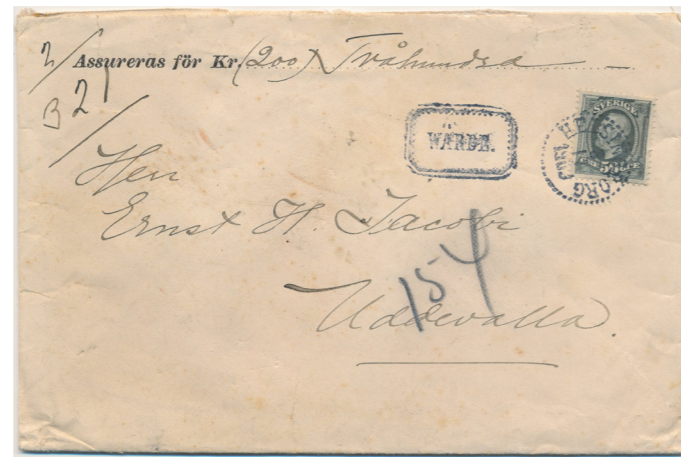 2/ Assureras för Kr. (200) Tvåhundra
B 21/
WÄRDE.
SVERIGE
Herr
Ernst H. Jacobi
154
Uddevalla.